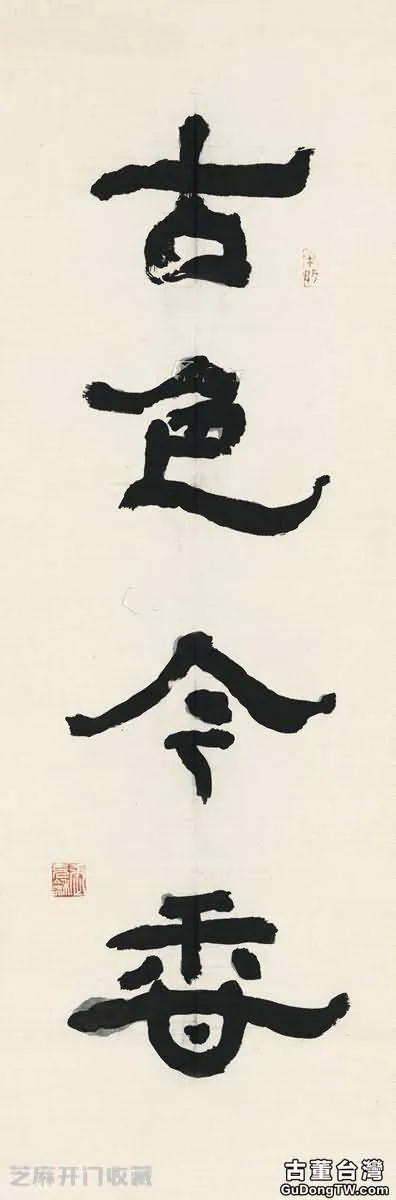 古色今香
芝麻开门收藏
古董台灣
GuDongTW.com